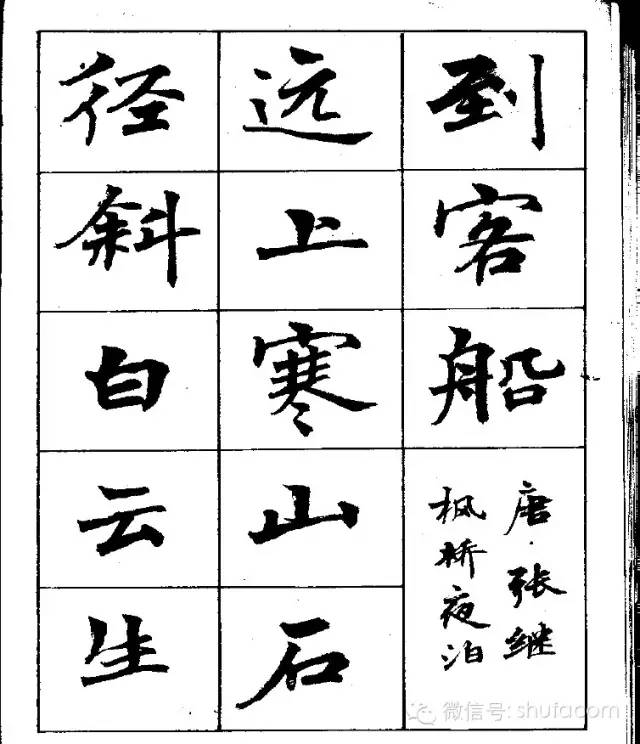 到客船
唐·张继
枫桥夜泊
远上寒山石
径斜白云生
微信号: shufacom